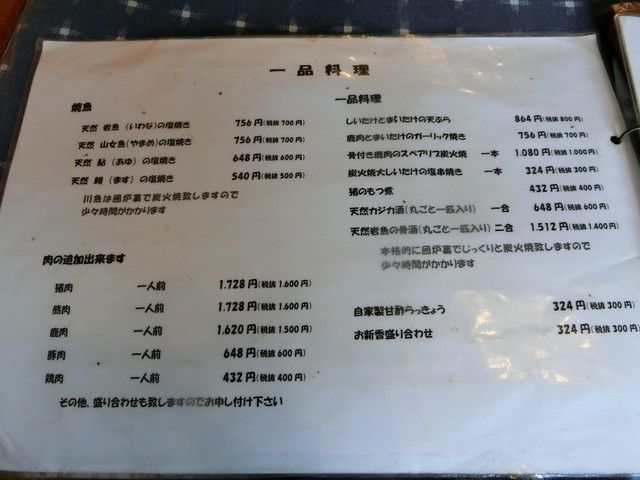 一品料理
焼魚
天然 岩魚（いわな）の塩焼き 756円(税抜 700円)
天然 山女魚(やまめ)の塩焼き 756円(税抜 700円)
天然 鮎（あゆ）の塩焼き 648円(税抜 600円)
天然 鱒（ます）の塩焼き 540円(税抜 500円)
川魚は囲炉裏で炭火焼致しますので
少々時間がかかります
肉の追加出来ます
猪肉 一人前 1.728円(税抜 1.600円)
熊肉 一人前 1.728円(税抜 1.600円)
鹿肉 一人前 1.620円(税抜 1.500円)
豚肉 一人前 648円(税抜 600円)
鶏肉 一人前 432円(税抜 400円)
その他、盛り合わせも致しますのでお申し付け下さい
一品料理
しいたけとまいたけの天ぷら 864円(税抜 800円)
鹿肉とまいたけのガーリック焼き 756円(税抜 700円)
骨付き鹿肉のスペアリブ炭火焼 一本 1.080円(税抜 1.000円)
炭火焼大しいたけの塩串焼き 一本 324円(税抜 300円)
猪のもつ煮 432円(税抜 400円)
天然カジカ酒(丸ごと一匹入り) 一合 648円(税抜 600円)
天然岩魚の骨酒(丸ごと一匹入り) 二合 1.512円(税抜 1.400円)
本格的に囲炉裏でじっくりと炭火焼致しますので
少々時間がかかります
自家製甘酢らっきょう 324円(税抜 300円)
お新香盛り合わせ 324円(税抜 300円)